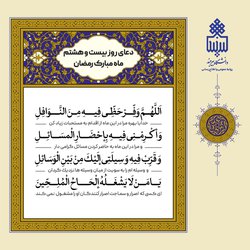 دعای روز بیست و هشتم
ماه مبارک رمضان
اَللّهُمَّ وَفِّرْ حَظّى فيهِ مِنَ النَّوافِلِ
خدایا بهره مرا در این ماه از اقدام به مستحبات زیاد کن
وَاَكْرِمْنى فيهِ بِاِحْضارِ الْمَسائِلِ
و مرا در این ماه به حاضر کردن مسائل، گرامی دار
وَقَرِّبْ فيهِ وَسيلَتى اِلَيْكَ مِنْ بَيْنِ الْوَسائِلِ
و وسیله ام را به سویت از میان وسیله ها نزدیک گردان
يا مَنْ لا يَشْغَلُهُ اِلْحاحُ الْمُلِحّينَ
ای کسی که اصرار و سماجت اصرار کنندگان او را مشغول نمی کند